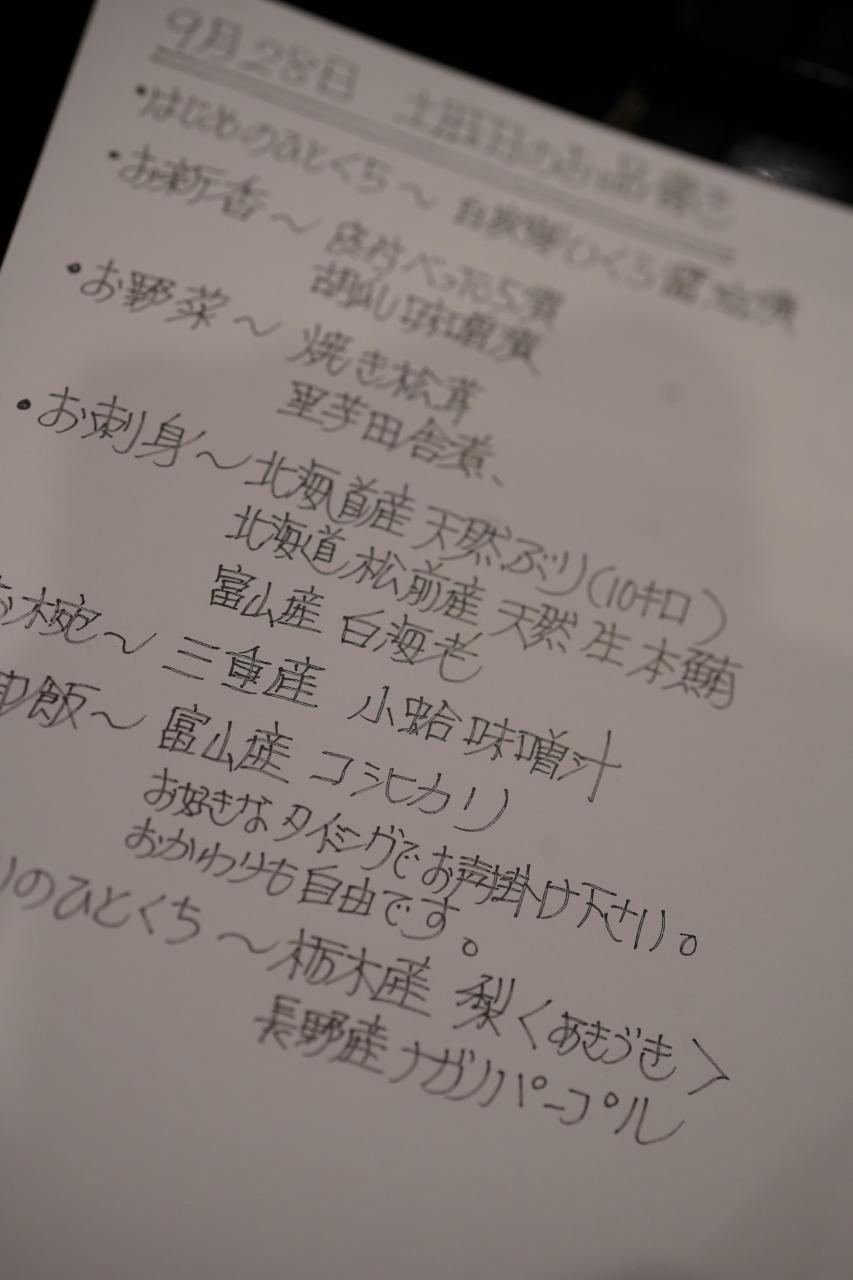 9月28日 土曜日のお品書き
・はじめのひとくち〜 自家製いくら醤油漬
・お新香〜 べったら漬
胡瓜味噌漬
・お野菜〜 焼き松茸
里芋田舎煮、
・お刺身〜北海道産 天然ぶり(10キロ)
北海道松前産 天然 生本鮪
富山産 白海老
お椀〜 三重産 小蛤味噌汁
御飯〜 富山産 コシヒカリ
お好きなタイミングでお声掛け下さい。
おかわりも自由です。
りのひとくち〜栃木産 梨<あきづき>
長野産ナガノパープル